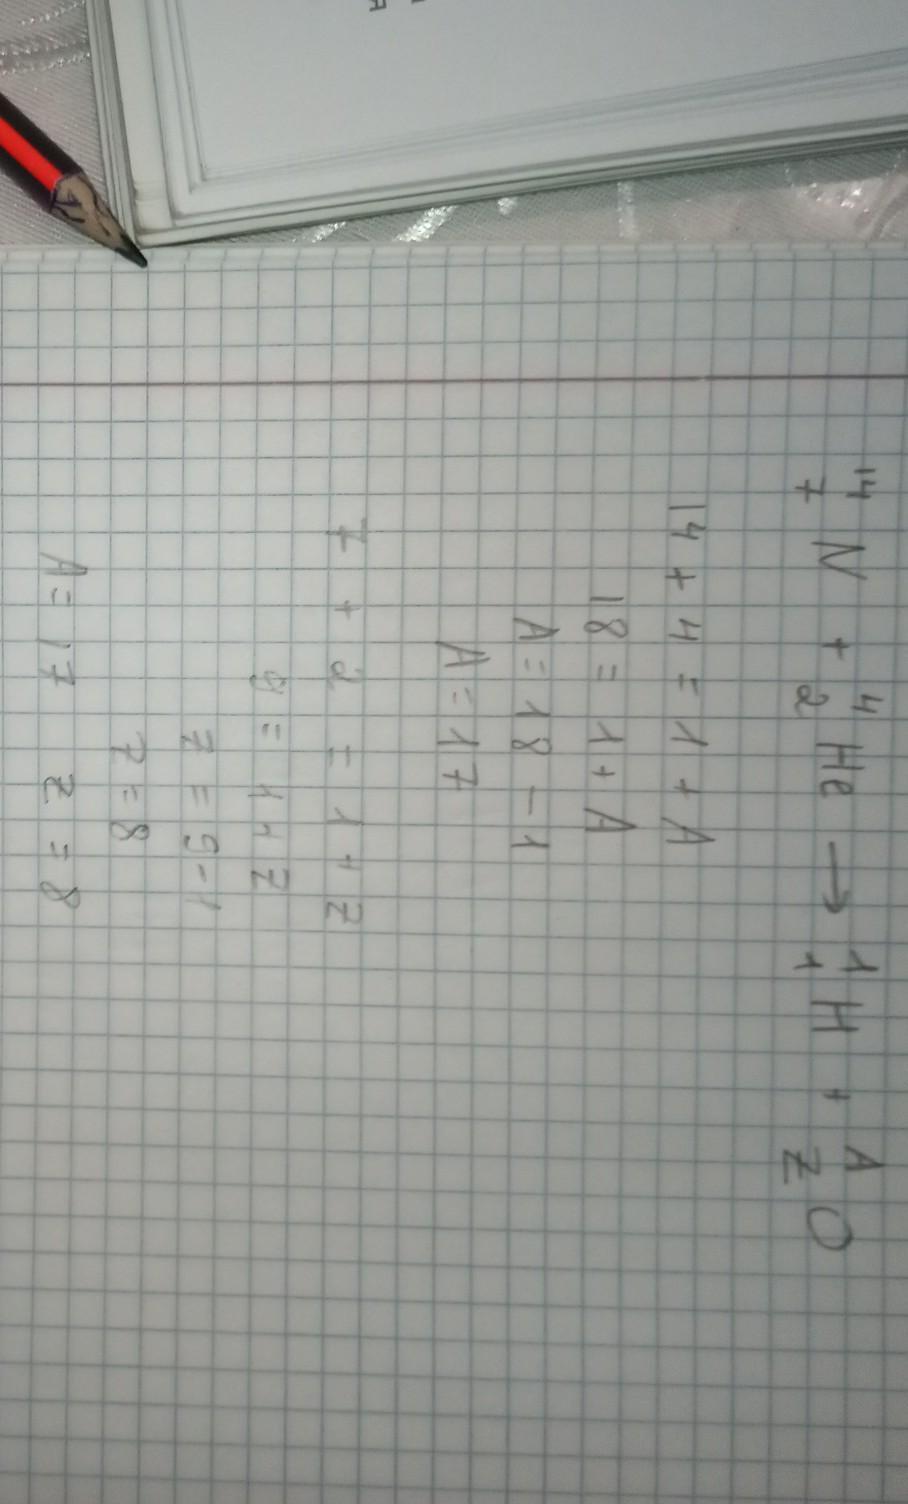 ¹⁴₇N + ⁴₂He → ¹₁H + ᴬ_Z O
14 + 4 = 1 + A
18 = 1 + A
A = 18 - 1
A = 17
7 + 2 = 1 + Z
9 = 1 + Z
Z = 9 - 1
Z = 8
A = 17 Z = 8